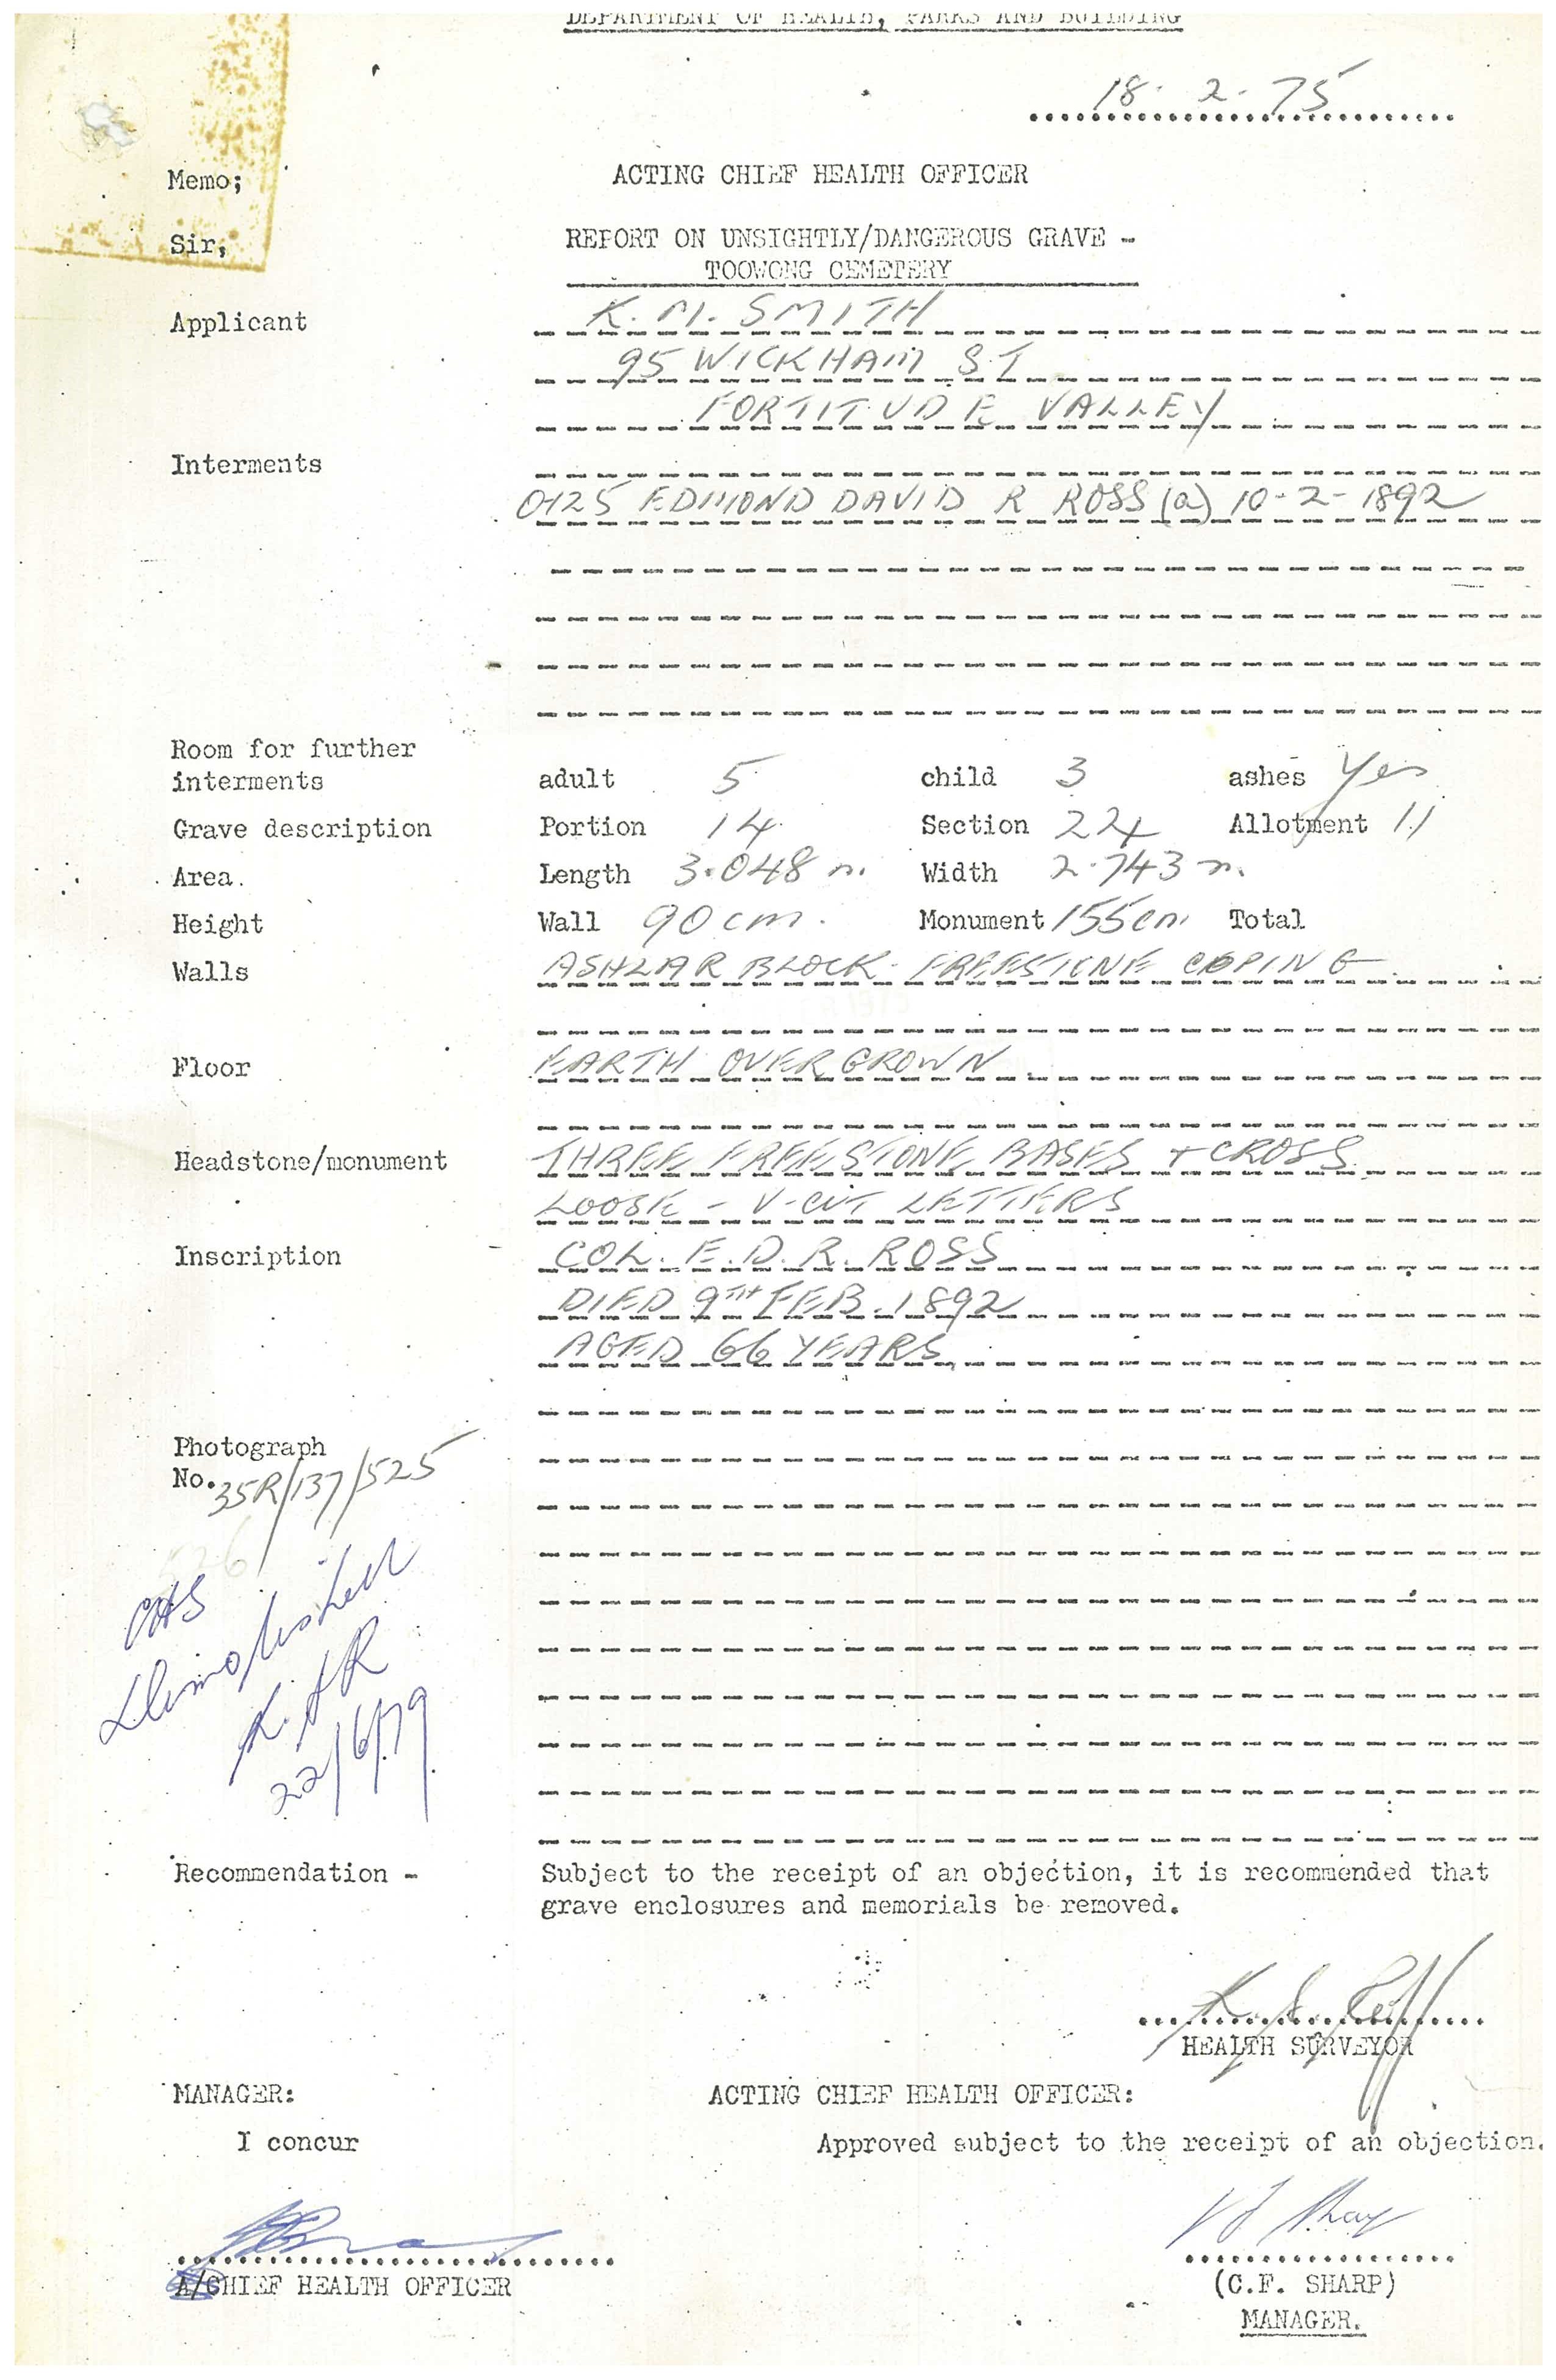 DEPARTMENT OF HEALTH, PARKS AND BUILDING
18. 2. 75
Memo; ACTING CHIEF HEALTH OFFICER
Sir, REPORT ON UNSIGHTLY/DANGEROUS GRAVE -
TOOWONG CEMETERY
Applicant K. M. SMITH
95 WICKHAM ST
FORTITUDE VALLEY
Interments
0125 EDMOND DAVID R ROSS (a) 10-2-1892
Room for further
interments adult 5 child 3 ashes Yes
Grave description Portion 14 Section 22 Allotment 11
Area. Length 3.048 m. Width 2.743 m.
Height Wall 90 cm. Monument 155cm Total
Walls ASHLAR BLOCK - FREESTONE COPING
Floor EARTH OVERGROWN
Headstone/monument THREE FREESTONE BASES + CROSS
LOOSE - V-CUT LETTERS
Inscription COL. E. D. R. ROSS
DIED 9TH FEB. 1892
AGED 66 YEARS
Photograph
No. 35R/137/525
526
22/6/79
Recommendation - Subject to the receipt of an objection, it is recommended that
grave enclosures and memorials be removed.
HEALTH SURVEYOR
MANAGER: ACTING CHIEF HEALTH OFFICER:
I concur Approved subject to the receipt of an objection.
A/CHIEF HEALTH OFFICER (C.F. SHARP)
MANAGER.